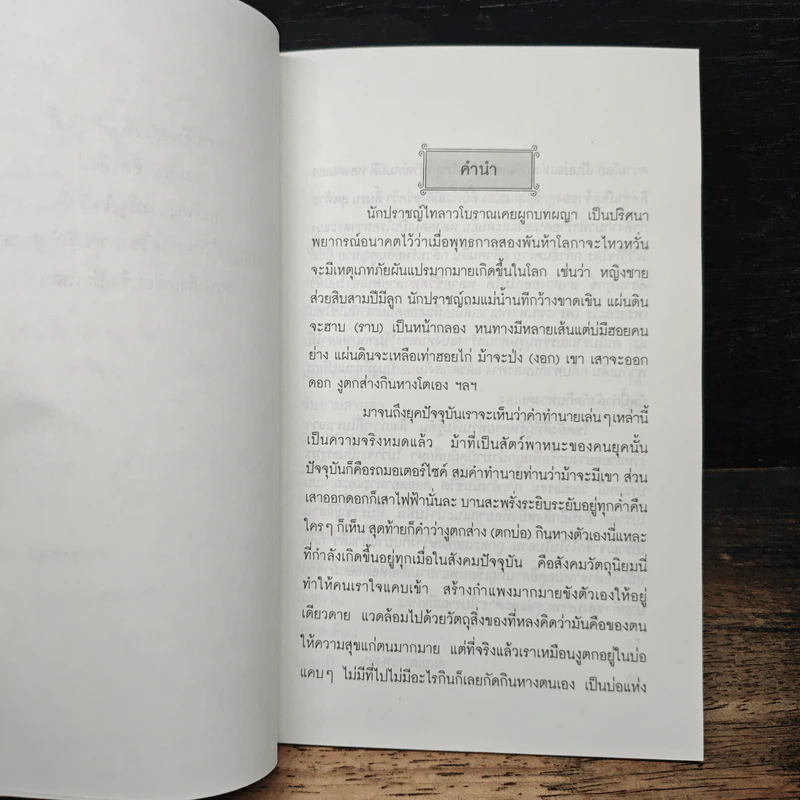 คำนำ
นักปราชญ์ไทลาวโบราณเคยผูกบทผญา เป็นปริศนา
พยากรณ์อนาคตไว้ว่าเมื่อพุทธกาลสองพันห้าโลกาจะไหวหวั่น
จะมีเหตุเภทภัยผันแปรมากมายเกิดขึ้นในโลก เช่นว่า หญิงชาย
ส่วยสิบสามปีมีลูก นักปราชญ์ถมแม่น้ำนทีกว้างขาดเขิน แผ่นดิน
จะฮาบ (ราบ) เป็นหน้ากลอง หนทางมีหลายเส้นแต่บ่มีฮอยคน
ย่าง แผ่นดินจะเหลือเท่าฮอยไก่ ม้าจะป่ง (งอก) เขา เสาจะออก
ดอก งูตกส่างกินหางโตเอง ฯลฯ
มาจนถึงยุคปัจจุบันเราจะเห็นว่าคำทำนายเล่นๆ เหล่านี้
เป็นความจริงหมดแล้ว ม้าที่เป็นสัตว์พาหนะของคนยุคนั้น
ปัจจุบันก็คือรถมอเตอร์ไซค์ สมคำทำนายท่านว่าม้าจะมีเขา ส่วน
เสาออกดอกก็เสาไฟฟ้านั่นละ บานสะพรั่งระยิบระยับอยู่ทุกค่ำคืน
ใครๆ ก็เห็น สุดท้ายก็คำว่างูตกส่าง (ตกบ่อ) กินหางตัวเองนี่แหละ
ที่กำลังเกิดขึ้นอยู่ทุกเมื่อในสังคมปัจจุบัน คือสังคมวัตถุนิยมนี่
ทำให้คนเราใจแคบเข้า สร้างกำแพงมากมายขังตัวเองให้อยู่
เดียวดาย แวดล้อมไปด้วยวัตถุสิ่งของที่หลงคิดว่ามันคือของตน
ให้ความสุขแก่ตนมากมาย แต่ที่จริงแล้วเราเหมือนงูตกอยู่ในบ่อ
แคบๆ ไม่มีที่ไปไม่มีอะไรกินก็เลยกัดกินหางตนเอง เป็นบ่อแห่ง